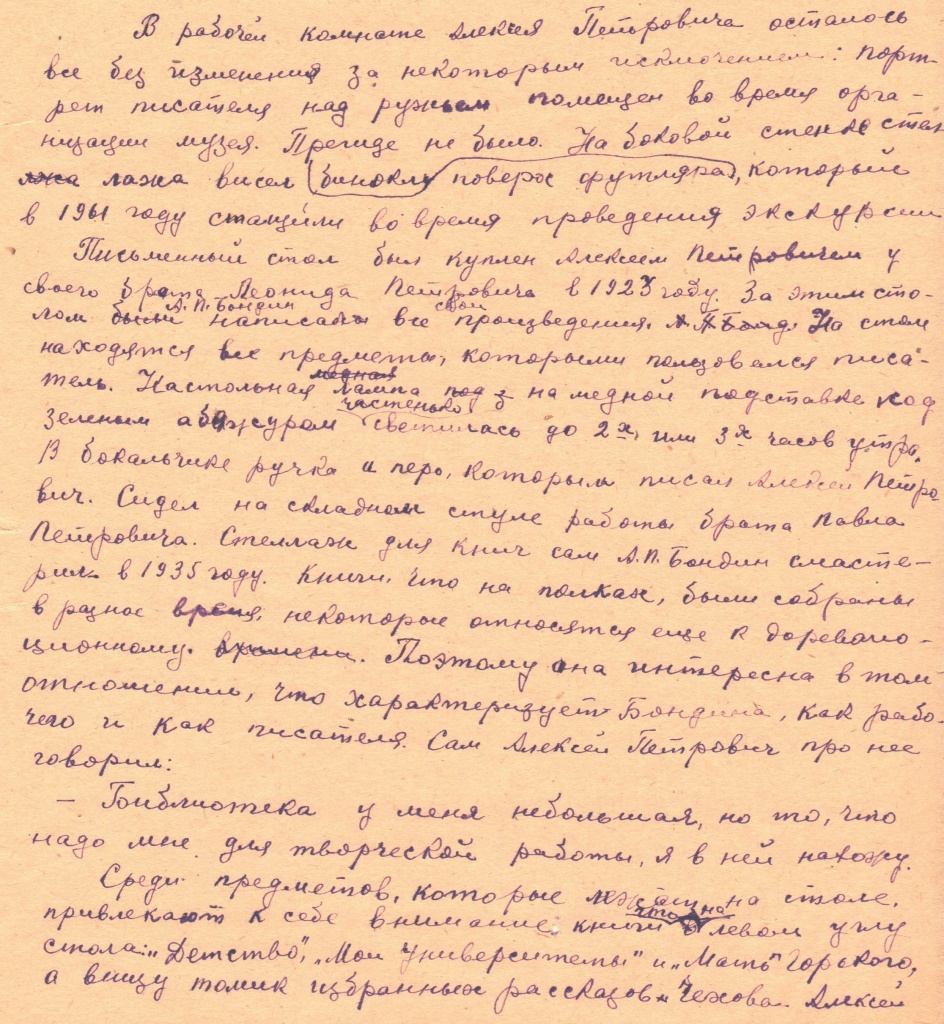 В рабочей комнате Алексея Петровича осталось
все без изменения за некоторым исключением: порт-
рет писателя над ружьем помещен во время орга-
низации музея. Прежде не было. На боковой стенке стел-
лажа висел бинокль поверх футляра, который
в 1961 году стащили во время проведения экскурсии
Письменный стол был куплен Алексеем Петровичем у
своего брата Леонида Петровича в 1923 году. За этим сто-
лом А.П. Бондин написал все свои произведения. На столе
находятся все предметы, которыми пользовался писа-
тель. Настольная лампа на медной подставке под
зеленым абажуром частенько светилась до 2х или 3х часов утра.
В бокальчике ручка и перо, которым писал Алексей Петро-
вич. Сидел на складном стуле работы брата Павла
Петровича. Стеллаж для книг сам А.П. Бондин смасте-
рил в 1935 году. Книги, что на полках, были собраны
в разное время, некоторые относятся еще к дореволю-
ционному. Поэтому она интересна в том
отношении, что характеризует Бондина, как рабо-
чего и как писателя. Сам Алексей Петрович про нее
говорил:
– Библиотека у меня небольшая, но то, что
надо мне для творческой работы, я в ней нахожу.
Среди предметов, которые лежат на столе,
привлекают к себе внимание книги что на левом углу
стола: „Детство", „Мои университеты" и „Мать" Горького,
а внизу томик избранных рассказов Чехова. Алексей